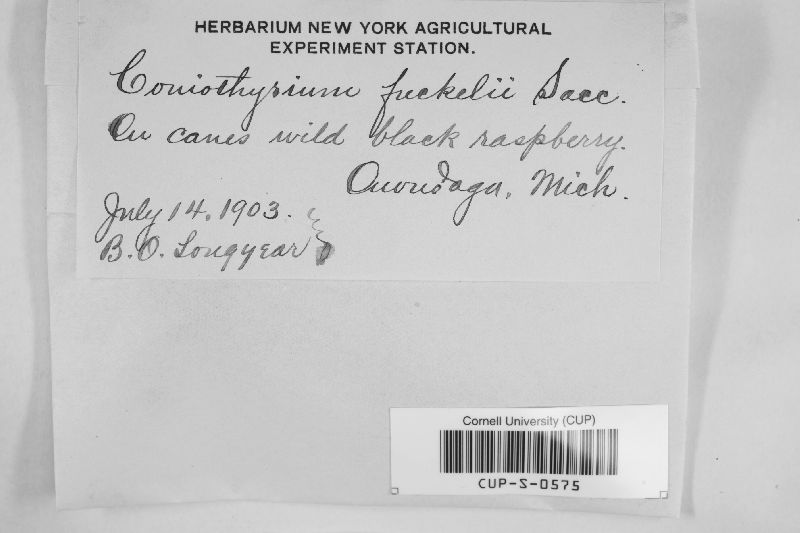 HERBARIUM NEW YORK AGRICULTURAL
EXPERIMENT STATION.
Coniothyrium fuckelii Sacc.
On canes wild black raspberry.
Onondaga, Mich.
July 14, 1903.
B. O. Longyear
Cornell University (CUP)
CUP-S-0575